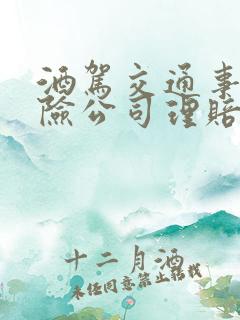 酒駕交通事
險公司理賠
十二月酒
未经同意禁止转载